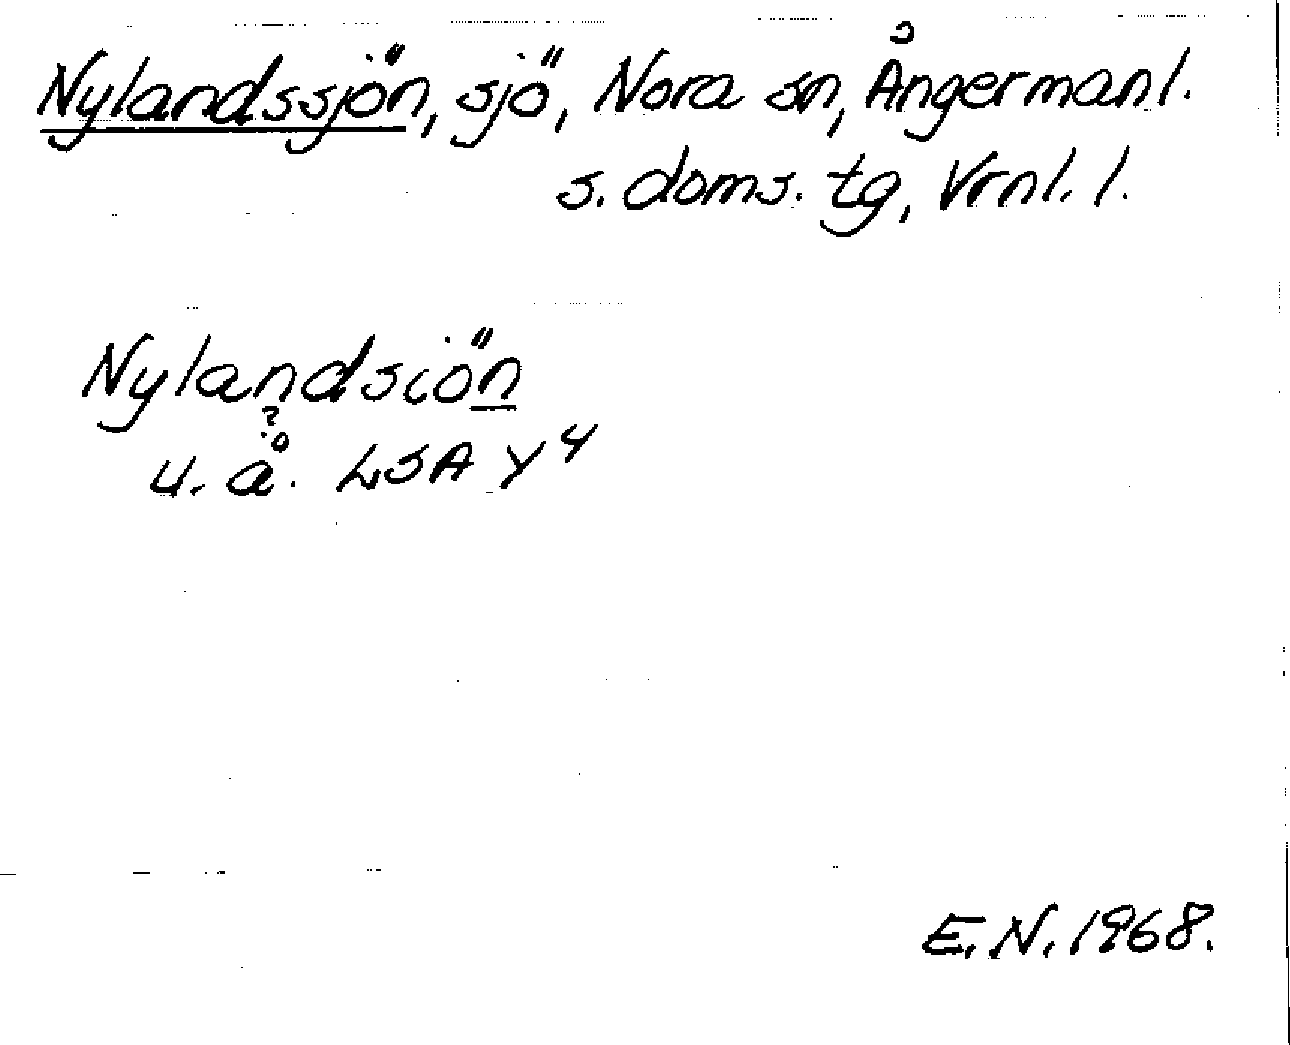 Nylandssjön, sjö, Nora sn, Ångermanl.
s. doms. tg, Vrnl. l.
Nylandsciön
u. å. LSA Y 4
E. N. 1968.